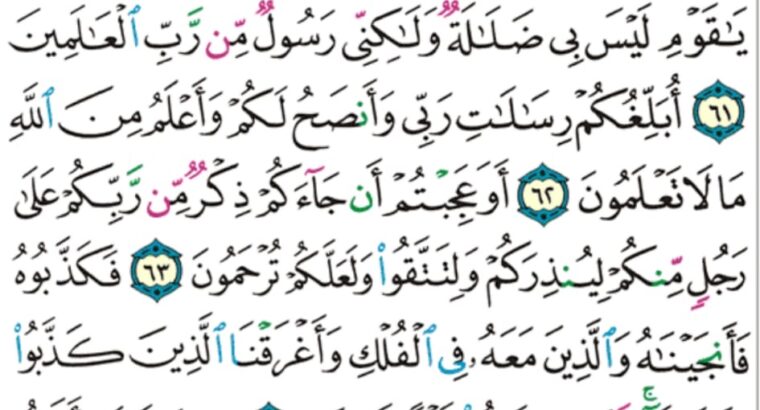 يَٰقَوْمِ لَيْسَ بِى ضَلَٰلَةٌ وَلَٰكِنِّى رَسُولٌ مِّن رَّبِّ ٱلْعَٰلَمِينَ
٦١ أُبَلِّغُكُمْ رِسَٰلَٰتِ رَبِّى وَأَنصَحُ لَكُمْ وَأَعْلَمُ مِنَ ٱللَّهِ
مَا لَا تَعْلَمُونَ ٦٢ أَوَعَجِبْتُمْ أَن جَآءَكُمْ ذِكْرٌ مِّن رَّبِّكُمْ عَلَىٰ
رَجُلٍ مِّنكُمْ لِيُنذِرَكُمْ وَلِتَتَّقُوا۟ وَلَعَلَّكُمْ تُرْحَمُونَ ٦٣ فَكَذَّبُوهُ
فَأَنجَيْنَٰهُ وَٱلَّذِينَ مَعَهُۥ فِى ٱلْفُلْكِ وَأَغْرَقْنَا ٱلَّذِينَ كَذَّبُوا۟